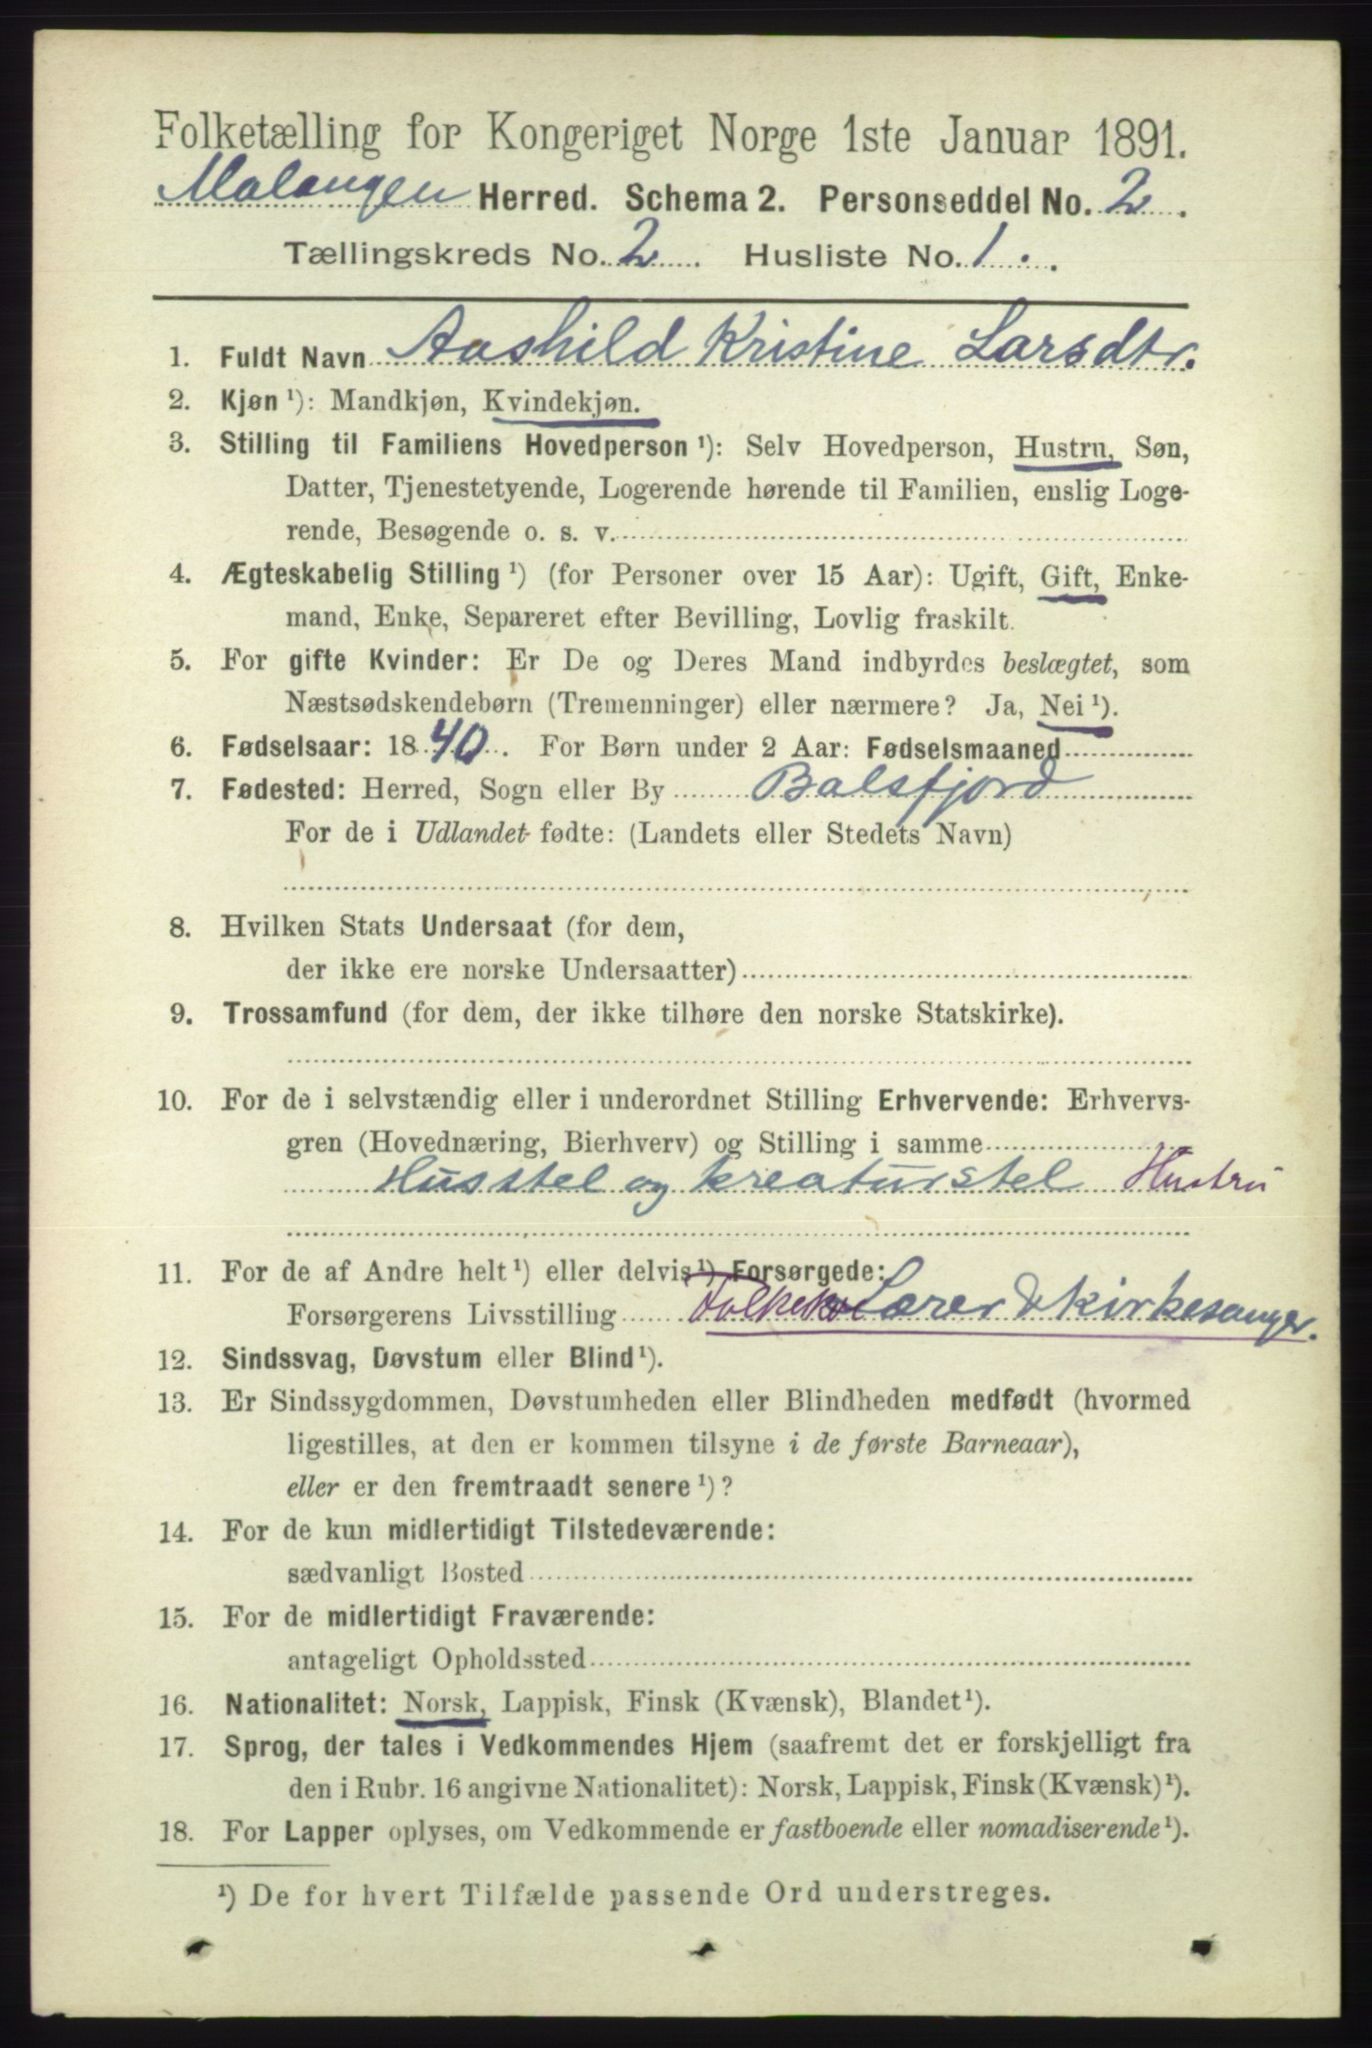 Folketælling for Kongeriget Norge 1ste Januar 1891.
Malangen Herred. Schema 2. Personseddel No. 2.
Tællingskreds No. 2. Husliste No. 1.
1. Fuldt Navn Aashild Kristine Larsdtr.
2. Kjøn ¹): Mandkjøn, Kvindekjøn.
3. Stilling til Familiens Hovedperson ¹): Selv Hovedperson, Hustru, Søn,
Datter, Tjenestetyende, Logerende hørende til Familien, enslig Loge-
rende, Besøgende o. s. v.
4. Ægteskabelig Stilling ¹) (for Personer over 15 Aar): Ugift, Gift, Enke-
mand, Enke, Separeret efter Bevilling, Lovlig fraskilt.
5. For gifte Kvinder: Er De og Deres Mand indbyrdes beslægtet, som
Næstsødskendebørn (Tremenninger) eller nærmere? Ja, Nei ¹).
6. Fødselsaar: 1840. For Børn under 2 Aar: Fødselsmaaned
7. Fødested: Herred, Sogn eller By Balsfjord
For de i Udlandet fødte: (Landets eller Stedets Navn)
8. Hvilken Stats Undersaat (for dem,
der ikke ere norske Undersaatter)
9. Trossamfund (for dem, der ikke tilhøre den norske Statskirke).
10. For de i selvstændig eller i underordnet Stilling Erhvervende: Erhvervs-
gren (Hovednæring, Bierhverv) og Stilling i samme
Husstel og kreaturstel Hustru
11. For de af Andre helt ¹) eller delvis ¹) Forsørgede:
Forsørgerens Livsstilling Lærer & kirkesanger.
12. Sindssvag, Døvstum eller Blind ¹).
13. Er Sindssygdommen, Døvstumheden eller Blindheden medfødt (hvormed
ligestilles, at den er kommen tilsyne i de første Barneaar),
eller er den fremtraadt senere ¹)?
14. For de kun midlertidigt Tilstedeværende:
sædvanligt Bosted
15. For de midlertidigt Fraværende:
antageligt Opholdssted
16. Nationalitet: Norsk, Lappisk, Finsk (Kvænsk), Blandet ¹).
17. Sprog, der tales i Vedkommendes Hjem (saafremt det er forskjelligt fra
den i Rubr. 16 angivne Nationalitet): Norsk, Lappisk, Finsk (Kvænsk) ¹).
18. For Lapper oplyses, om Vedkommende er fastboende eller nomadiserende ¹).
¹) De for hvert Tilfælde passende Ord understreges.